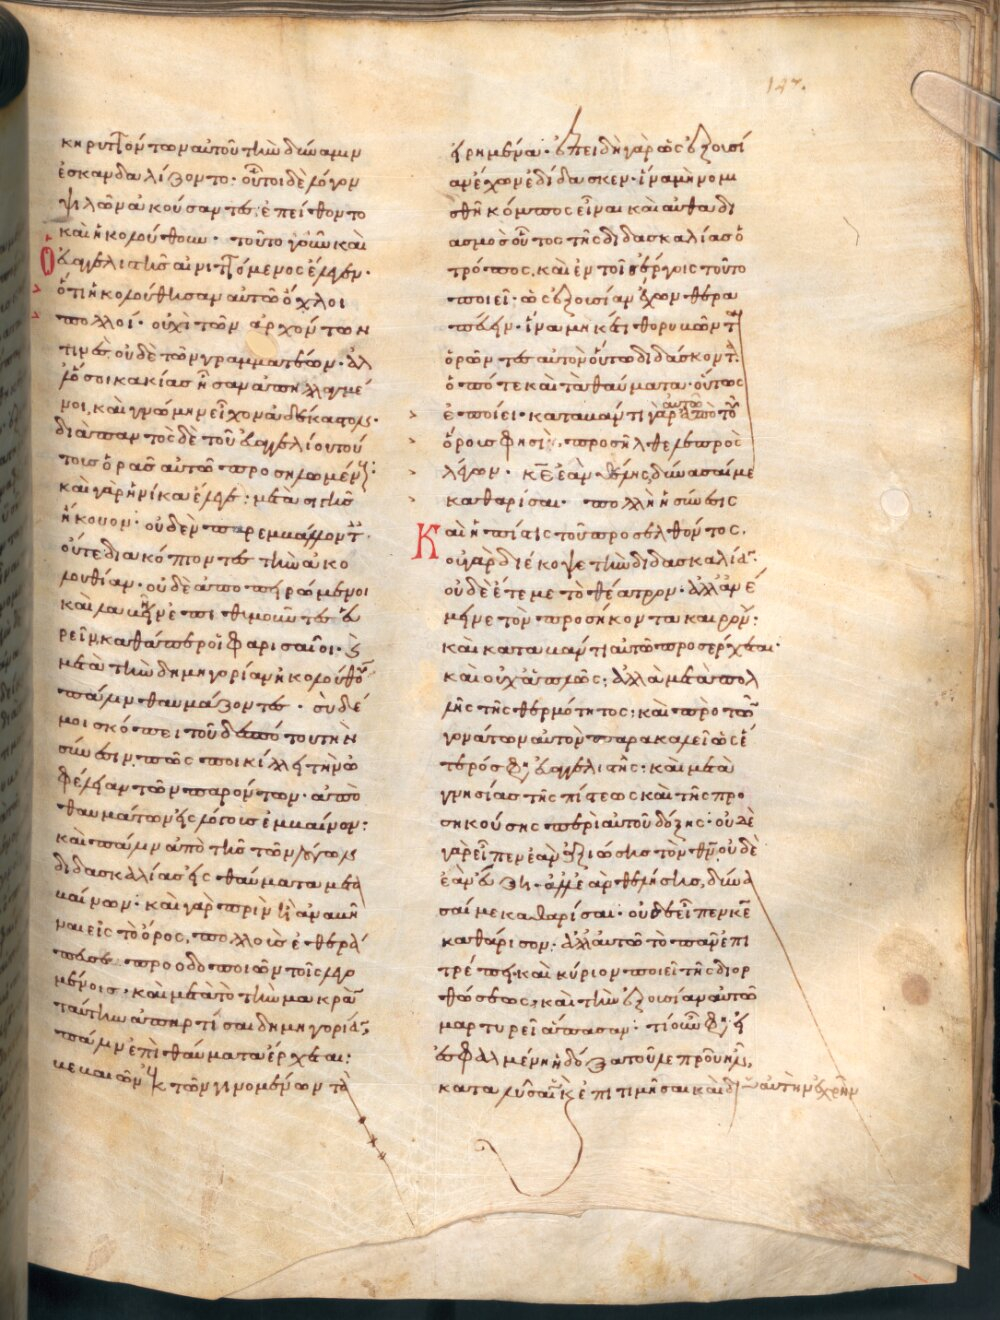 127.
κηρυττόντων αὐτοῦ τὴν δύναμιν
ἐσκανδαλίζοντο· οὗτοι δὲ λόγον
ψιλῶν ἀκούσαντες, ἐπείθοντο
καὶ ἠκολούθουν· τοῦτο γοῦν καὶ
ὁ εὐαγγελιστὴς αἰνιττόμενος ἔλεγεν·
ὅτι ἠκολούθησαν αὐτῶ ὄχλοι
πολλοί· οὐχὶ τῶν ἀρχόντων
τινὲς οὐδὲ τῶν γραμματέων· ἀλ
λ' ὅσοι κακίας ἦσαν ἀπηλλαγμέ
νοι, καὶ γνώμην εἶχον ἀδέκαστον·
διὰ παντὸς δὲ τοῦ εὐαγγελίου τού
τους ὁρᾶς αὐτῶ προσηλωμένους·
καὶ γὰρ ἡνίκα ἔλεγε· μετὰ σιγῆς
ἤκουον· οὐδὲν παρεμβάλλοντες·
οὔτε διακόπτοντες τὴν ἀκο
λουθίαν· οὐδὲ ἀποπειρώμενοι
καὶ λαβὴν ἐπιθυμοῦντες εὑ
ρεῖν καθάπερ οἱ φαρισαῖοι· καὶ
μετὰ τὴν δημηγορίαν ἠκολούθουν
πάλιν θαυμάζοντες· σὺ δέ
μοι σκόπει τοῦ δεσπότου τὴν
σύνεσιν. πῶς ποικίλλει τὴν ὠ
φέλειαν τῶν παρόντων· ἀπὸ
θαυμάτων εἰς λόγους ἐμβαίνων·
καὶ πάλιν ἀπὸ τῆς τῶν λόγων
διδασκαλίας εἰς θαύματα μετα
βαίνων· καὶ γὰρ πρὶν ἢ ἀναβῆ
ναι εἰς τὸ ὄρος, πολλοὺς ἐθερά
πευσε προοδοποιῶν τοῖς λεγο
μένοις· καὶ μετὰ τὸ τὴν μακρὰν
ταύτην ἀπαρτίσαι δημηγορίαν,
πάλιν ἐπὶ θαύματα ἔρχεται·
βεβαιῶν ἐκ τῶν γινομένων τὰ
εἰρημένα· ἐπειδὴ γὰρ ὡς ἐξουσί
αν ἔχων ἐδίδασκεν· ἵνα μὴ νομι
σθῆ κόμπος εἶναι καὶ αὐθαδι
ασμὸς οὗτος τῆς διδασκαλίας ὁ
τρόπος, καὶ ἐν τοῖς ἔργοις τοῦτο
ποιεῖ· ὡς ἐξουσίαν ἔχων θερα
πεύειν· ἵνα μηκέτι θορυβῶνται
ὁρῶντες αὐτὸν οὕτω διδάσκοντα·
ὁπότε καὶ τὰ θαύματα οὕτως
ἐποίει· καταβάντι γὰρ αὐτῶ ἀπὸ τοῦ
ὄρους φησὶ, προσῆλθε λεπρὸς
λέγων· κε ἐὰν θέλης δύνασαί με
καθαρίσαι· πολλὴ ἡ σύνεσις
Καὶ ἡ πίστις τοῦ προσελθόντος.
οὐ γὰρ διέκοψε τὴν διδασκαλίαν·
οὐδὲ ἔτεμε τὸ θέατρον· ἀλλ' ἀνέ
μεινε τὸν προσήκοντα καιρόν·
καὶ καταβάντι αὐτῶ προσέρχεται·
καὶ οὐχ ἁπλῶς, ἀλλὰ μετὰ πολ
λῆς τῆς θερμότητος· καὶ πρὸ τῶν
γονάτων αὐτὸν παρακαλεῖ ὡς ἕ
τερός φησιν εὐαγγελιστής· καὶ μετὰ
γνησίας τῆς πίστεως καὶ τῆς προ
σηκούσης περὶ αὐτοῦ δόξης· οὐδὲ
γὰρ εἶπεν ἐὰν ἀξιώσης τὸν θν οὐδὲ
ἐὰν εὔξη· ἀλλ' ἐὰν θελήσης, δύνα
σαί με καθαρίσαι· οὐδὲ εἶπεν κε
καθάρισον· ἀλλ' αὐτῶ τὸ πᾶν ἐπι
τρέπει καὶ κύριον ποιεῖ τῆς διορ
θώσεως, καὶ τὴν ἐξουσίαν αὐτῶ
μαρτυρεῖ ἅπασαν· τί οὖν φησιν εἰ
ἐσφαλμένη ἡ δόξα τοῦ λεπροῦ ἦν,
καταλῦσαι ἐχρῆν καὶ ἐπιτιμῆσαι καὶ δι